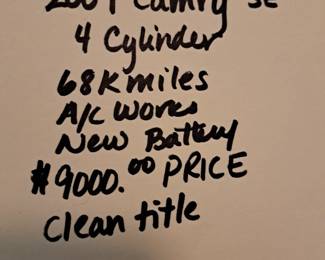 Camry SE
4 Cylinder
68K miles
A/C Works
New Battery
$9000.00 PRICE
Clean title